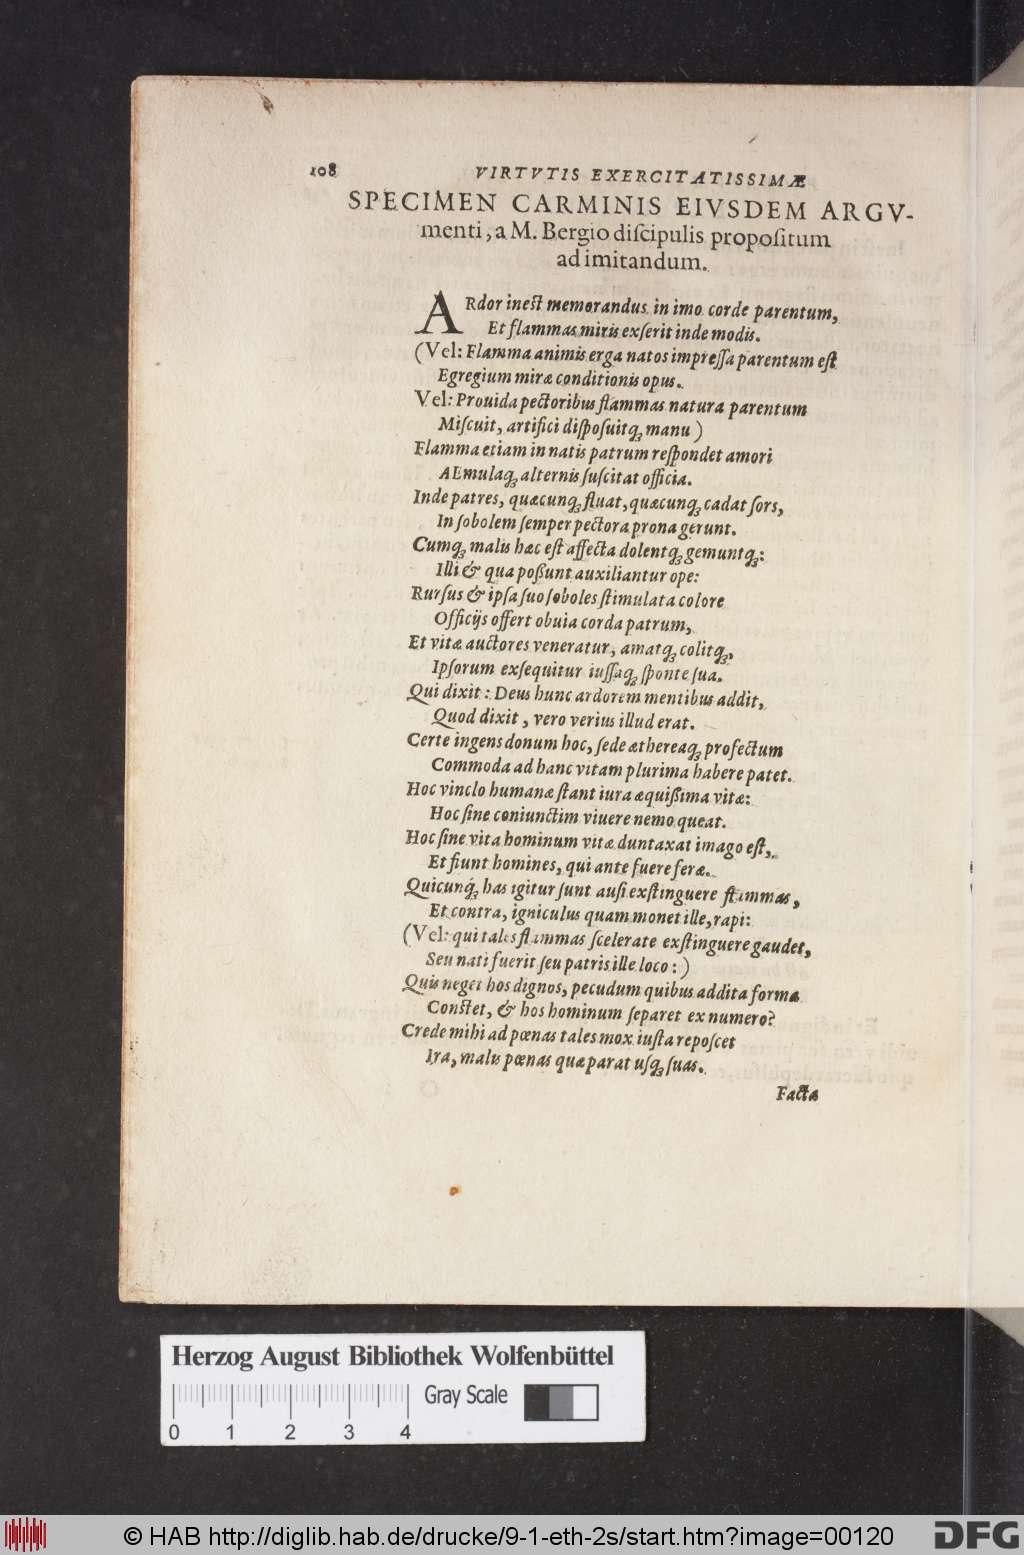 108 VIRTVTIS EXERCITATISSIMÆ
SPECIMEN CARMINIS EIVSDEM ARGV-
menti, a M. Bergio diſcipulis propoſitum
ad imitandum.
ARdor ineſt memorandus in imo corde parentum,
Et flammas miris exſerit inde modis.
(Vel: Flamma animis erga natos impreſſa parentum eſt
Egregium miræ conditionis opus.
Vel: Prouida pectoribus flammas natura parentum
Miſcuit, artifici diſpoſuitq́ꝫ manu)
Flamma etiam in natis patrum reſpondet amori
AEmulaq́ꝫ alternis ſuſcitat officia.
Inde patres, quæcunq́ꝫ fluat, quæcunq́ꝫ cadat ſors,
In ſobolem ſemper pectora prona gerunt.
Cumq́ꝫ malis hæc eſt affecta dolentq́ꝫ gemuntq́ꝫ:
Illi & qua poßunt auxiliantur ope:
Rurſus & ipſa ſuo ſoboles ſtimulata colore
Officijs offert obuia corda patrum,
Et vitæ auctores veneratur, amatq́ꝫ colitq́ꝫ,
Ipſorum exſequitur iuſſaq́ꝫ ſponte ſua.
Qui dixit: Deus hunc ardorem mentibus addit,
Quod dixit, vero verius illud erat.
Certe ingens donum hoc, ſede æthereaq́ꝫ profectum
Commoda ad hanc vitam plurima habere patet.
Hoc vinclo humanæ ſtant iura æquißima vitæ:
Hoc ſine coniunctim viuere nemo queat.
Hoc ſine vita hominum vitæ duntaxat imago eſt,
Et fiunt homines, qui ante fuere feræ.
Quicunq́ꝫ has igitur ſunt auſi exſtinguere flammas,
Et contra, igniculus quam monet ille, rapi:
(Vel: qui tales flammas ſcelerate exſtinguere gaudet,
Seu nati fuerit ſeu patris ille loco:)
Quis neget hos dignos, pecudum quibus addita forma
Conſtet, & hos hominum ſeparet ex numero?
Crede mihi ad pœnas tales mox iuſta repoſcet
Ira, malis pœnas quæ parat uſq́ꝫ ſuas.
Facta
Herzog August Bibliothek Wolfenbüttel
Gray Scale
0 1 2 3 4
© HAB http://diglib.hab.de/drucke/9-1-eth-2s/start.htm?image=00120 DFG